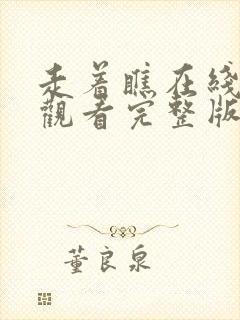 走着瞧在线
觀看完整版
董良泉